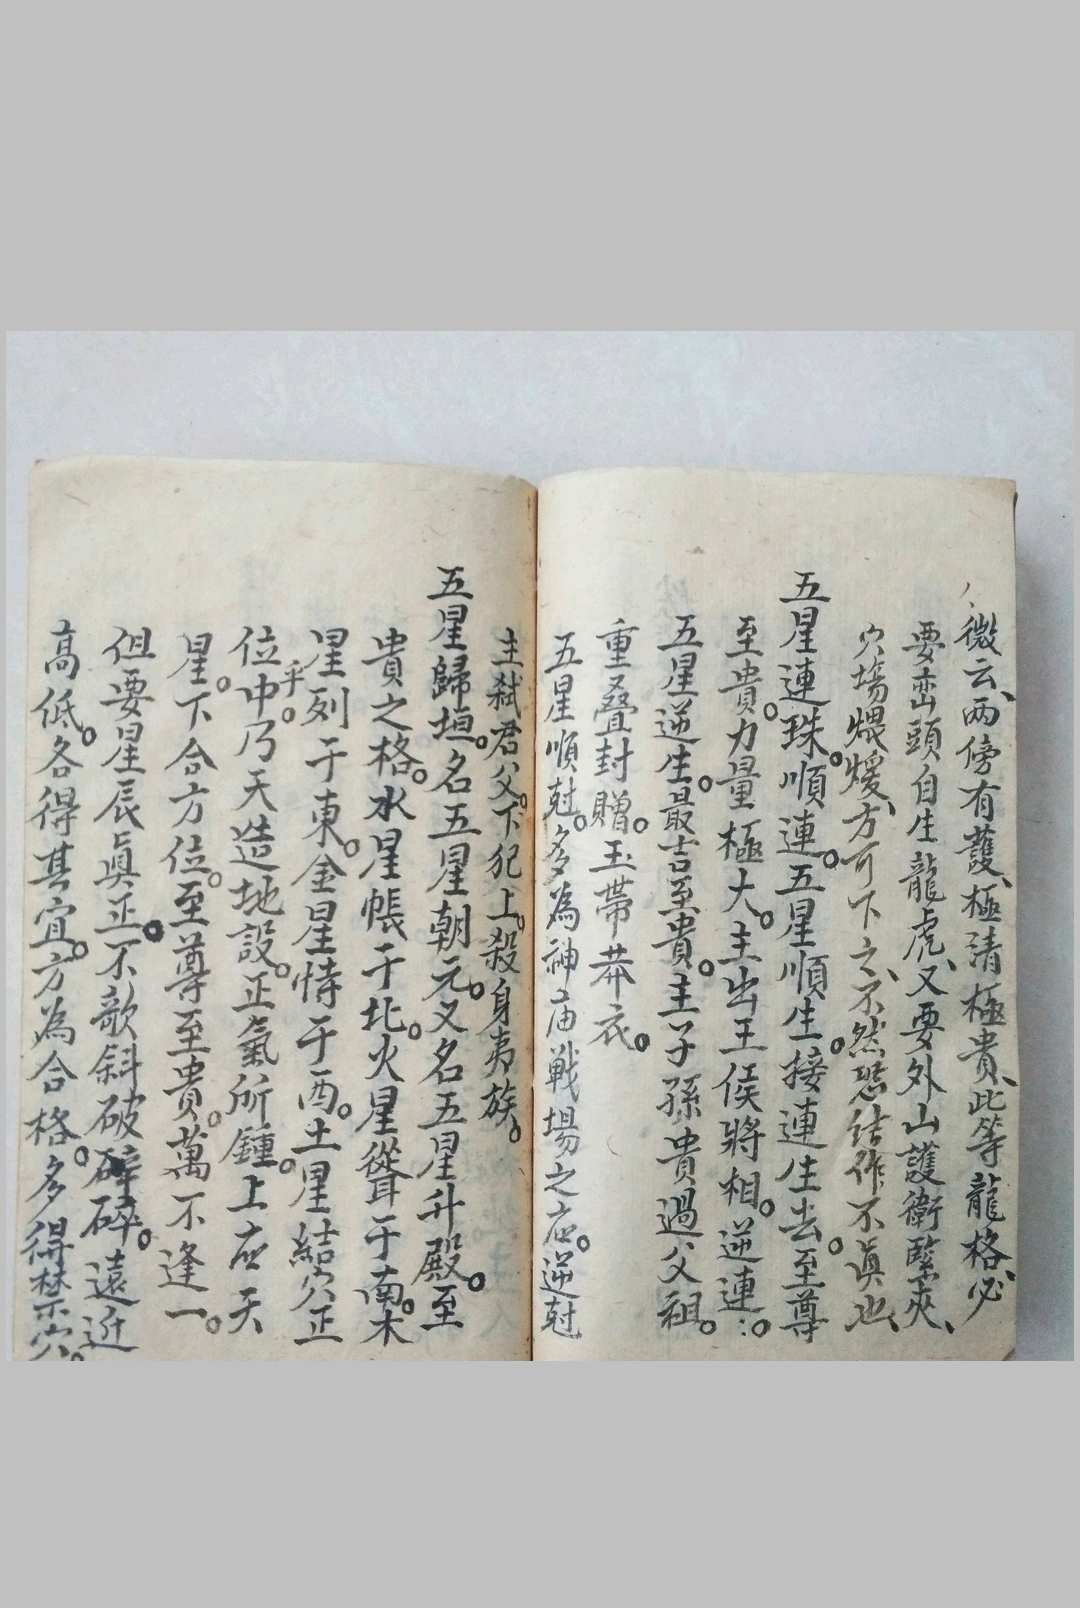 微云、两傍有護、極清極貴、此等龍格必
要峦頭自生龍虎、又要外山護衛緊夾、
穴塲煨煖、方可下之、不然恐結作不真也、
五星連珠。順連。五星順生。接連生去。至尊
至貴。力量極大。主出王侯將相。逆連：。
五星逆生。最吉至貴。主子孫貴過父祖。
重叠封贈。玉帶莽衣。
五星順尅。多為神庙戰場之应。逆尅
主弑君父。下犯上。殺身夷族。
五星歸垣。名五星朝元。又名五星升殿。至
貴之格。水星帳于北。火星聳于南。木
星列于東。金星恃于酉。土星結穴正
位中乎。乃天造地設。正氣所鍾。上应天
星。下合方位。至尊至貴。萬不逢一。
但要星辰真正。不歌斜破碎。遠近
高低。各得其宜。方為合格。多得禁穴。